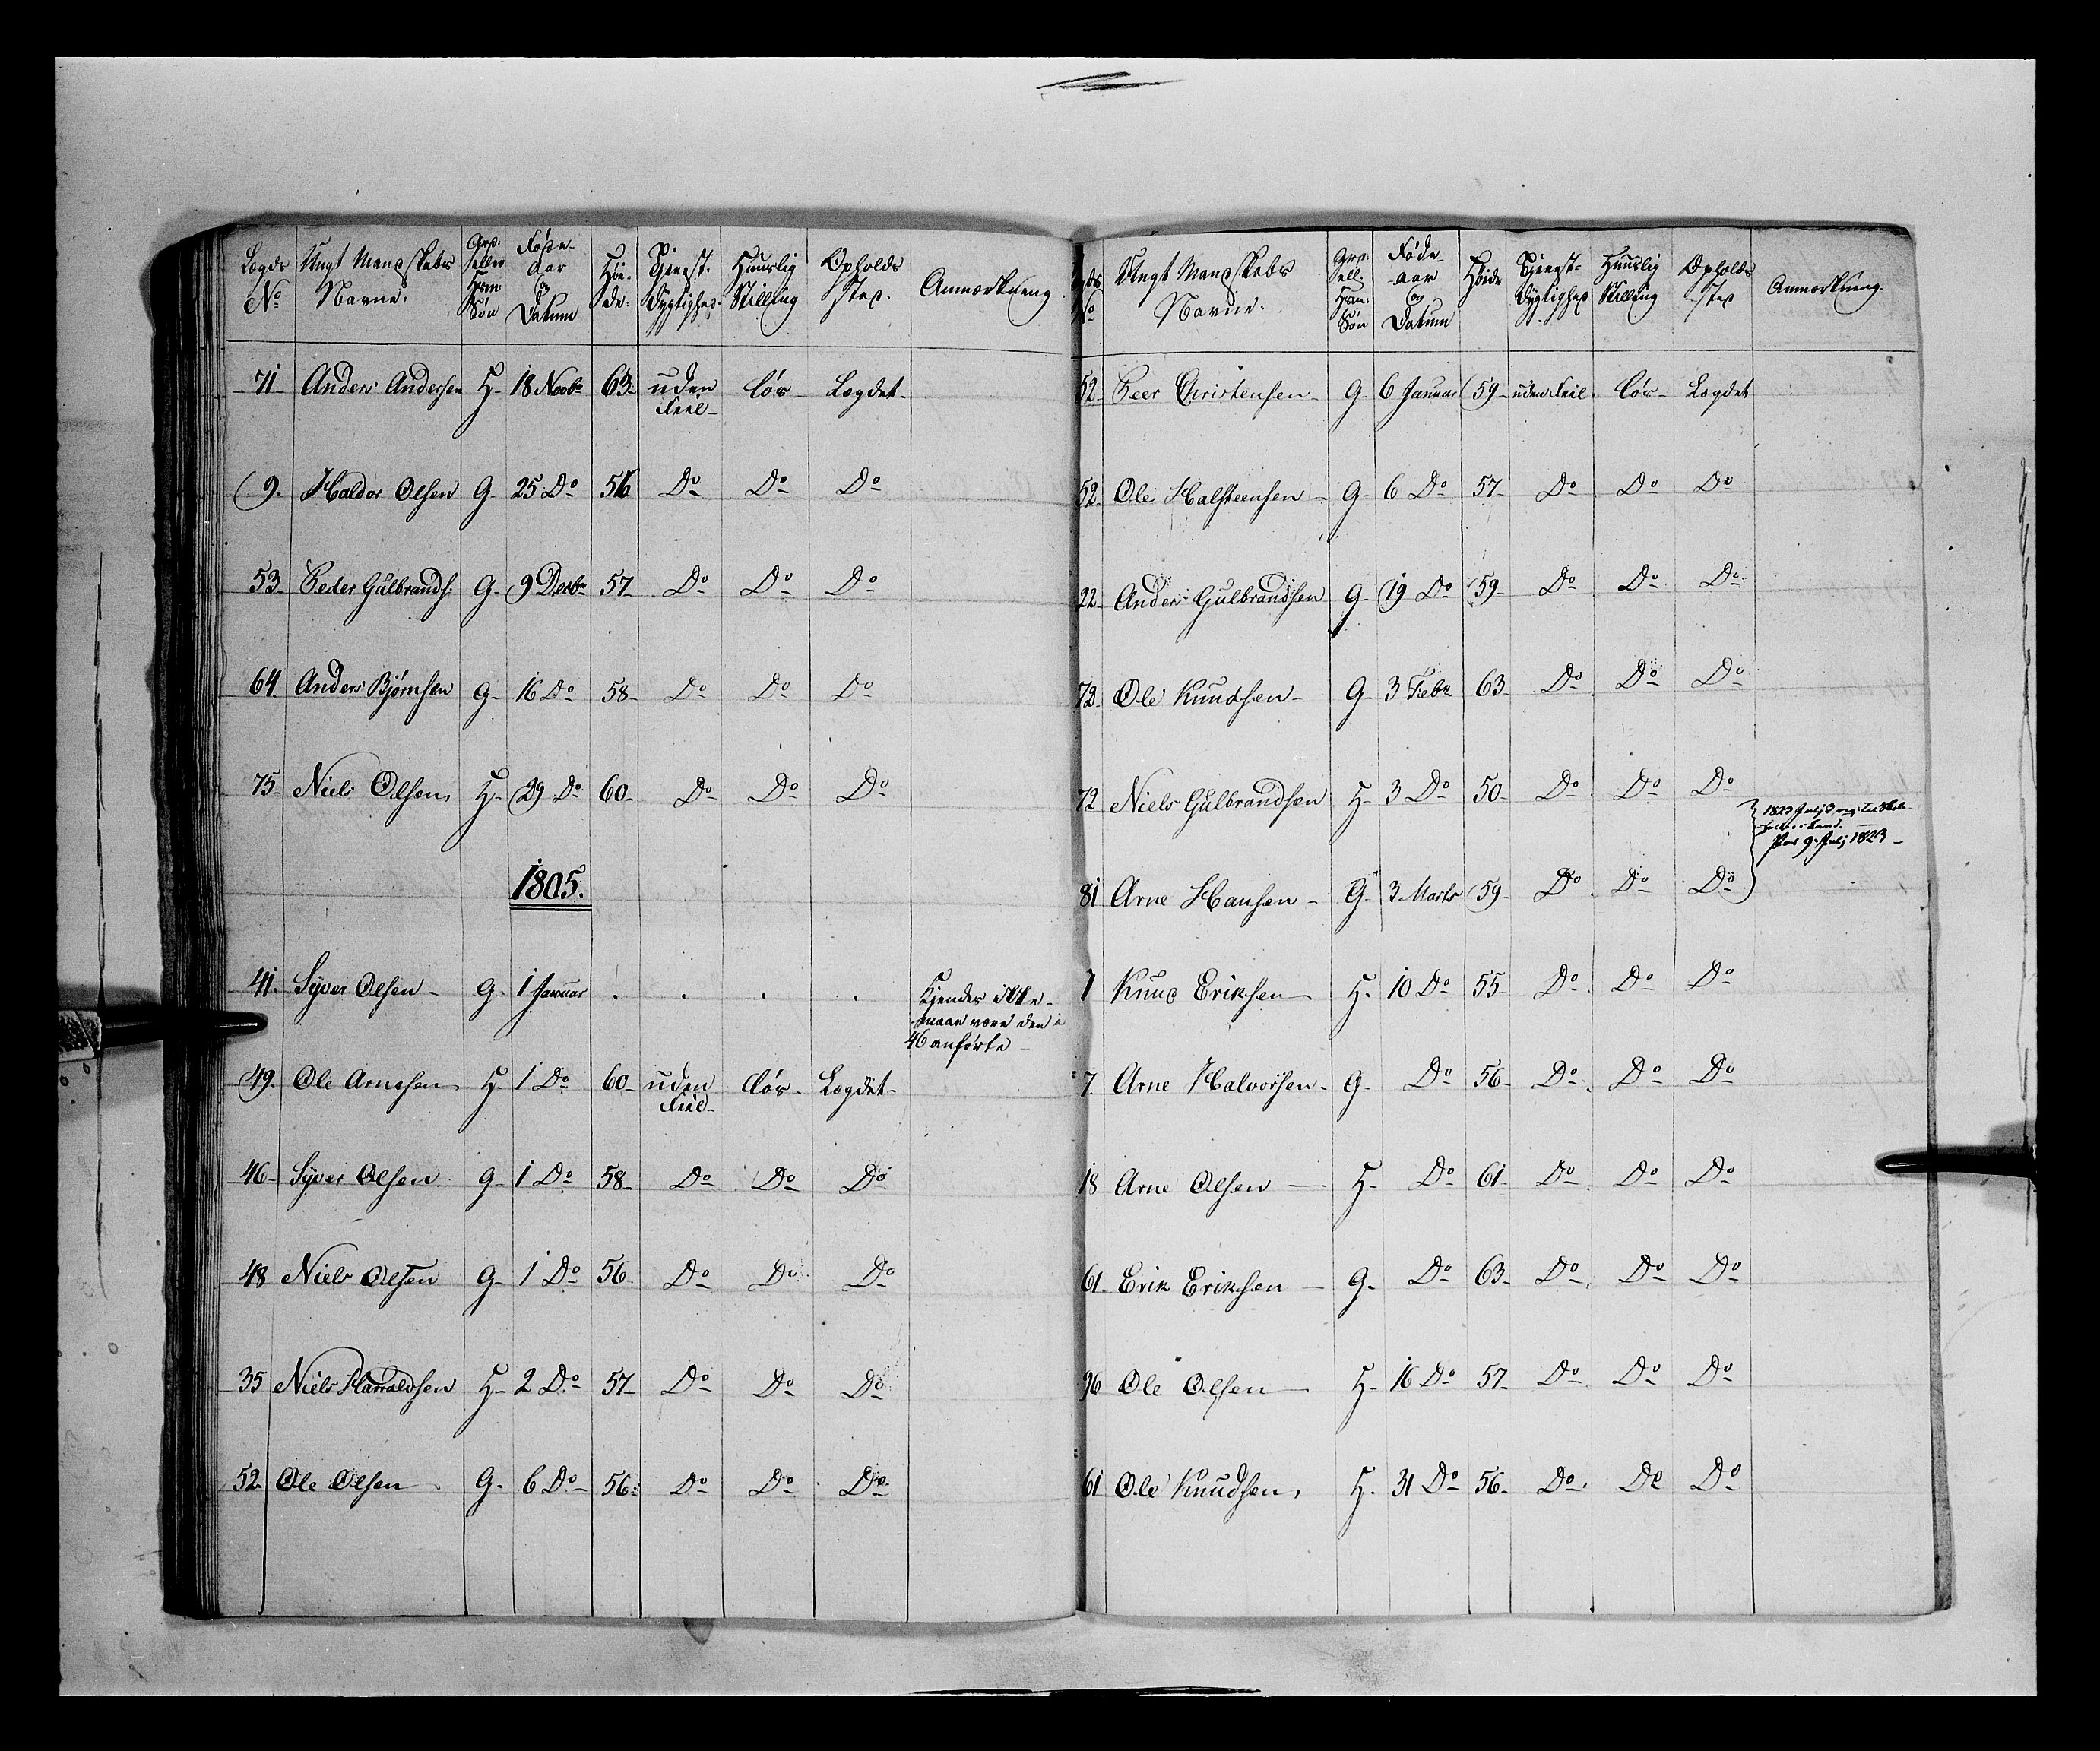 Lægds No | Ungt Mandskabs Navne. | Grd: heller Hsm: Søn | Føde- Aar og Datum | Høi- de. | Tjenest- Dygtighed | Huuslig Stilling | Opholds sted. | Anmærkning
71 Anders Andersen H 18 Novbr 63 uden Feil løs Lægdet
9. Haldor Olsen G 25 Do 56 Do Do Do
53 Peder Gulbrands: G 9 Decbr 57 Do Do Do
64 Anders Bjørnsen G 16 Do 58 Do Do Do
75 Niels Olsen H 29 Do 60 Do Do Do
1805.
41. Syver Olsen G. 1 Januar . . . . Kjendes ikke
maae være den i
46 anførte
49. Ole Arnesen H 1 Do 60 uden Feil løs Lægdet
46 Syver Olsen G 1 Do 58 Do Do Do
48 Niels Olsen G 1 Do 56 Do Do Do
35 Niels Harraldsen H 2 Do 57 Do Do Do
52 Ole Olsen G. 6 Do 56 Do Do Do
Ungt Mandskabs Navne. | Grd: ell: Hsm: Søn | Føde- aar og Datum | Høide | Tjenest- Dygtighed | Huuslig Stilling | Opholds sted | Anmærkning.
52 Peer Christensen G 6 Januar 59 uden Feil løs Lægdet
52 Ole Halsteensen G 6 Do 57 Do Do Do
22 Anders Gulbrandsen G 19 Do 59 Do Do Do
72 Ole Knudsen G 3 Febr 63 Do Do Do
72 Niels Gulbrandsen H 3 Do 50 Do Do Do
1823 Julj 3
Land.
Pas 9. Julj 1823
81 Arne Hansen G 3 Marts 59 Do Do Do
7 Knud Eriksen H. 10 Do 55 Do Do Do
7. Arne Halvorsen G Do 56 Do Do Do
18 Arne Olsen H Do 61 Do Do Do
61 Erik Eriksen G. Do 63 Do Do Do
96 Ole Olsen H 16 Do 57 Do Do Do
61 Ole Knudsen H. 31 Do 56 Do Do Do